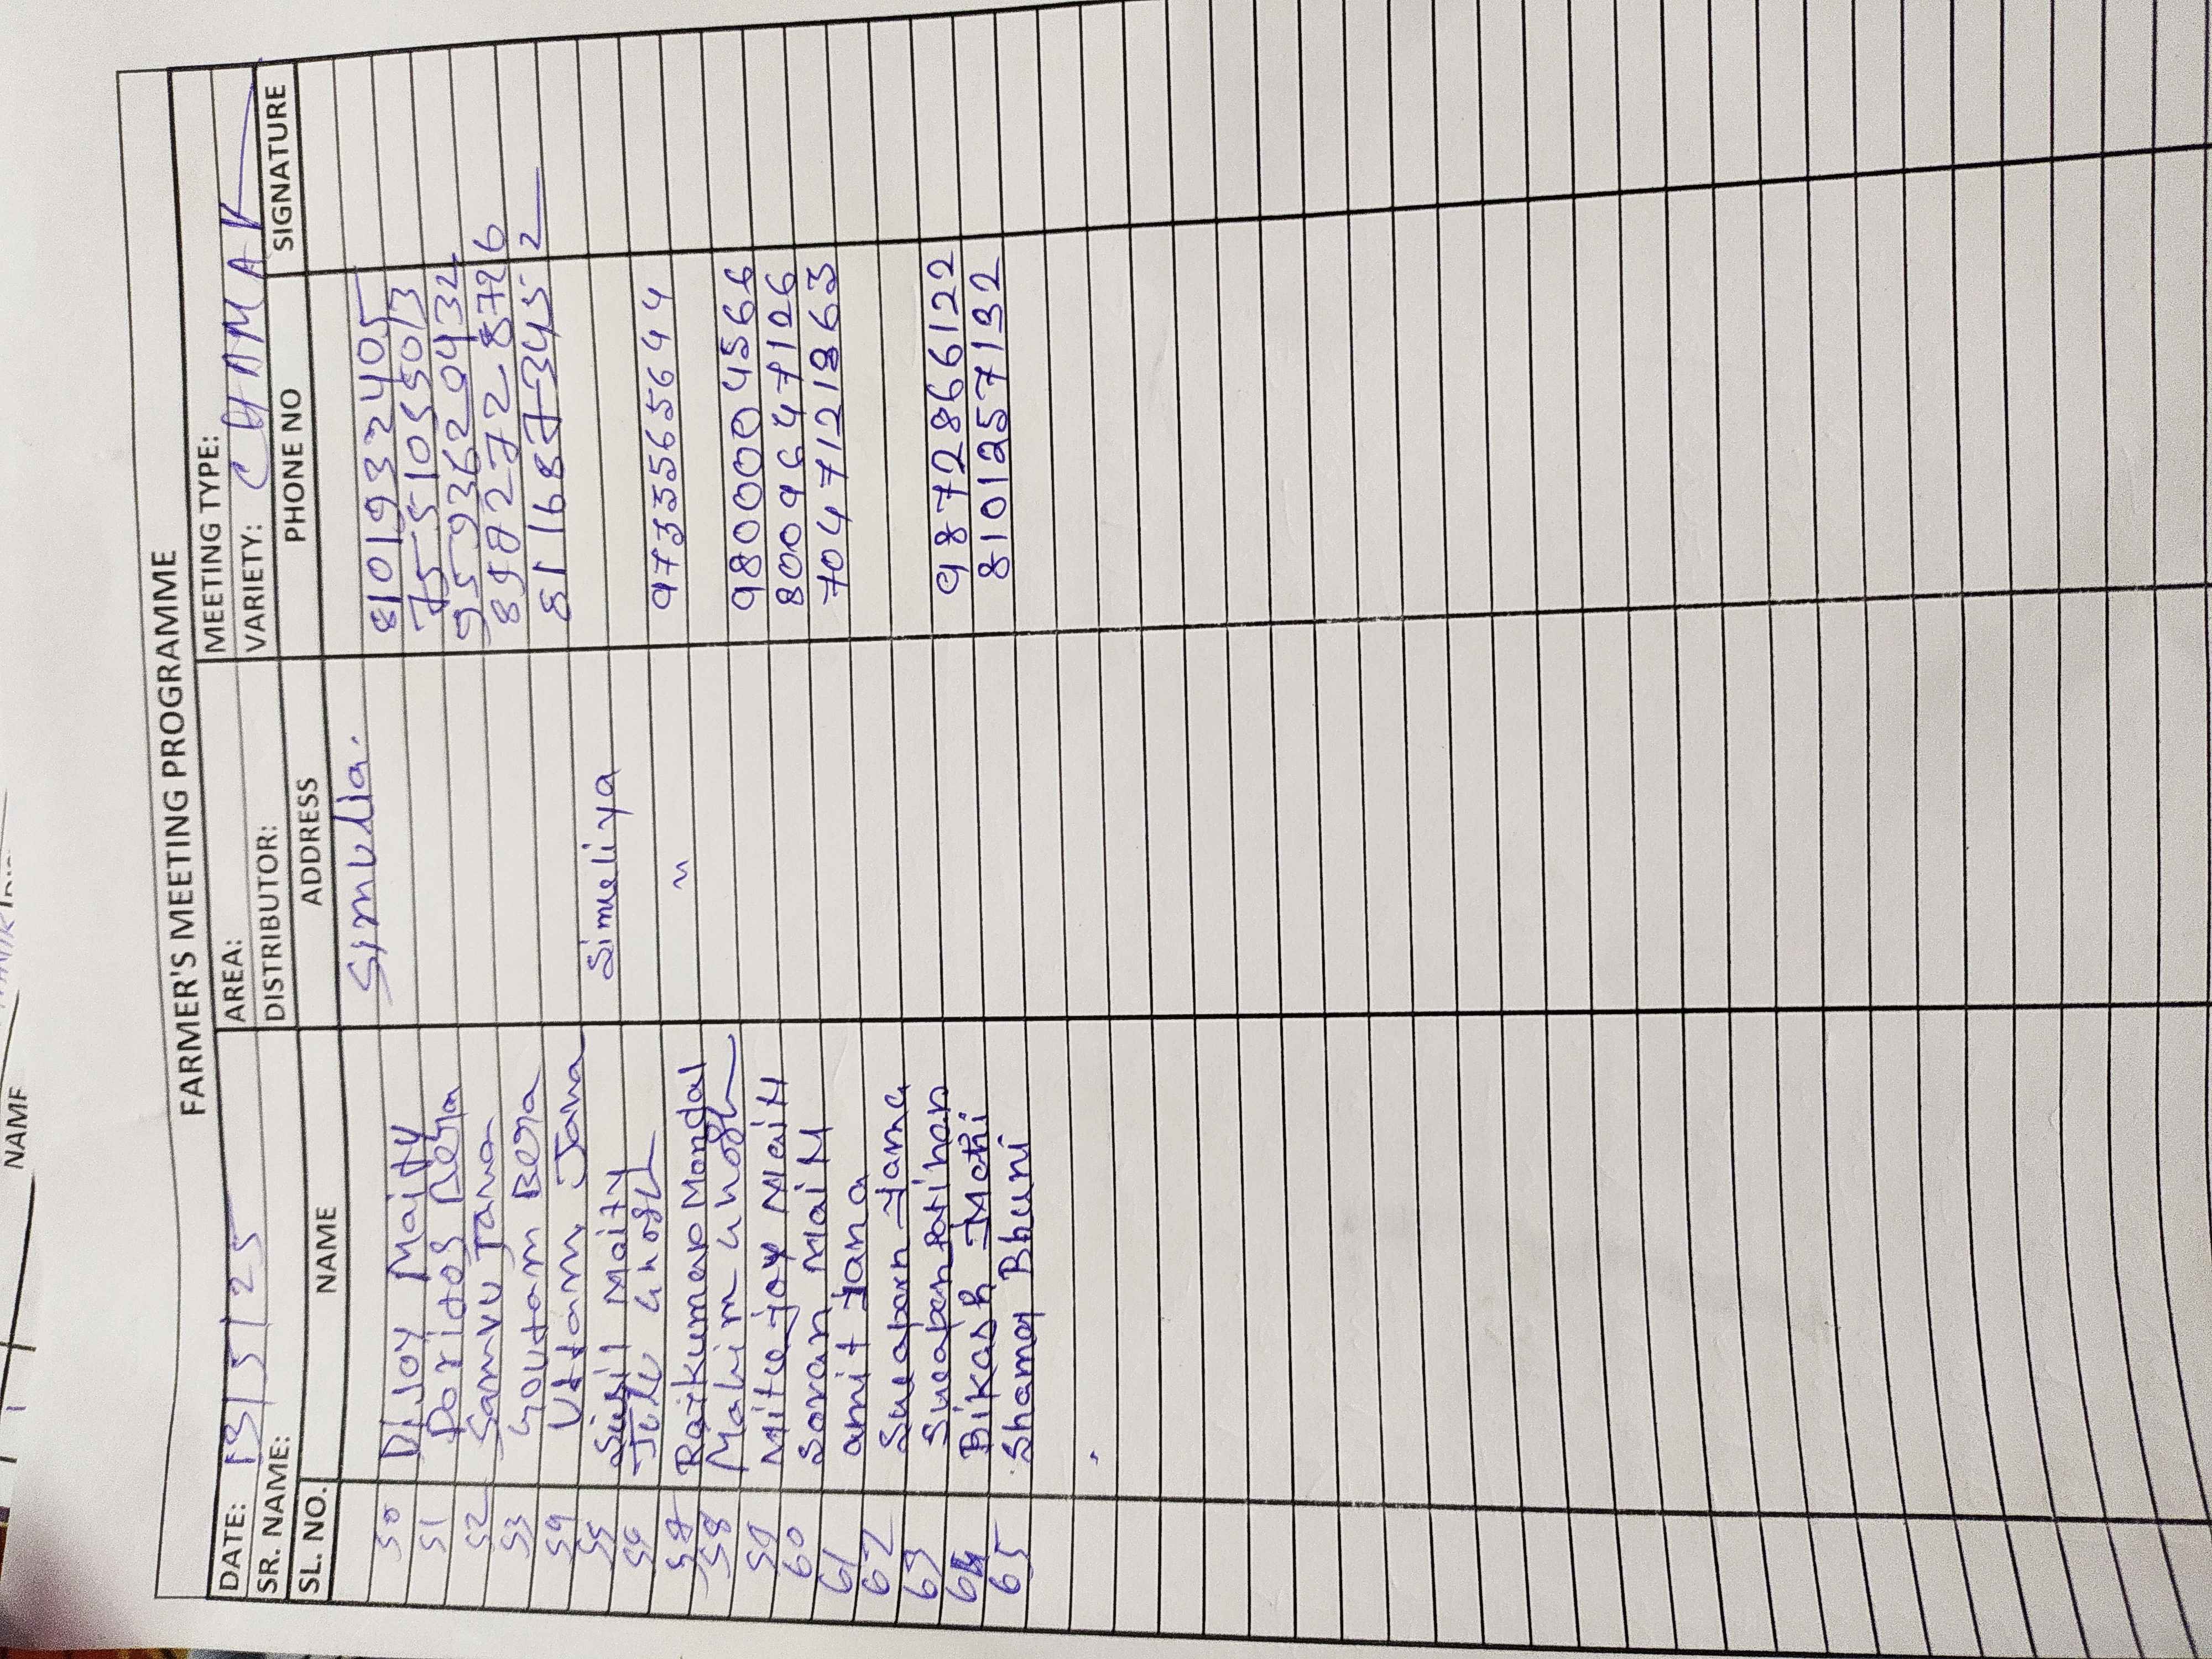 NAME
FARMER'S MEETING PROGRAMME
DATE: 13/5/25 AREA: MEETING TYPE:
SR. NAME: DISTRIBUTOR: VARIETY: CHAMAK
SL. NO. NAME ADDRESS PHONE NO SIGNATURE
Simulla.
50 Dijoy Maity 8101932405
51 Paritos Bera 7551055013
52 Samvu Jana 9593620432
53 Goutam Bera 8982728726
54 Uttam Jana 8116873452
55 Sunil Maity Simeliya
56 Jute Ghosh
57 Rajkumar Mondal ~ 9733565644
58 Mahim Ghosh
59 Mitejoy Maity 9800004566
60 Soran Maity 8009647126
61 amit Jana 7047121863
62 Sueaparn Jana
63 Sueapan Patihan
64 Bikash Mathi 9872866122
65 Shamal Bhuni 8101257132